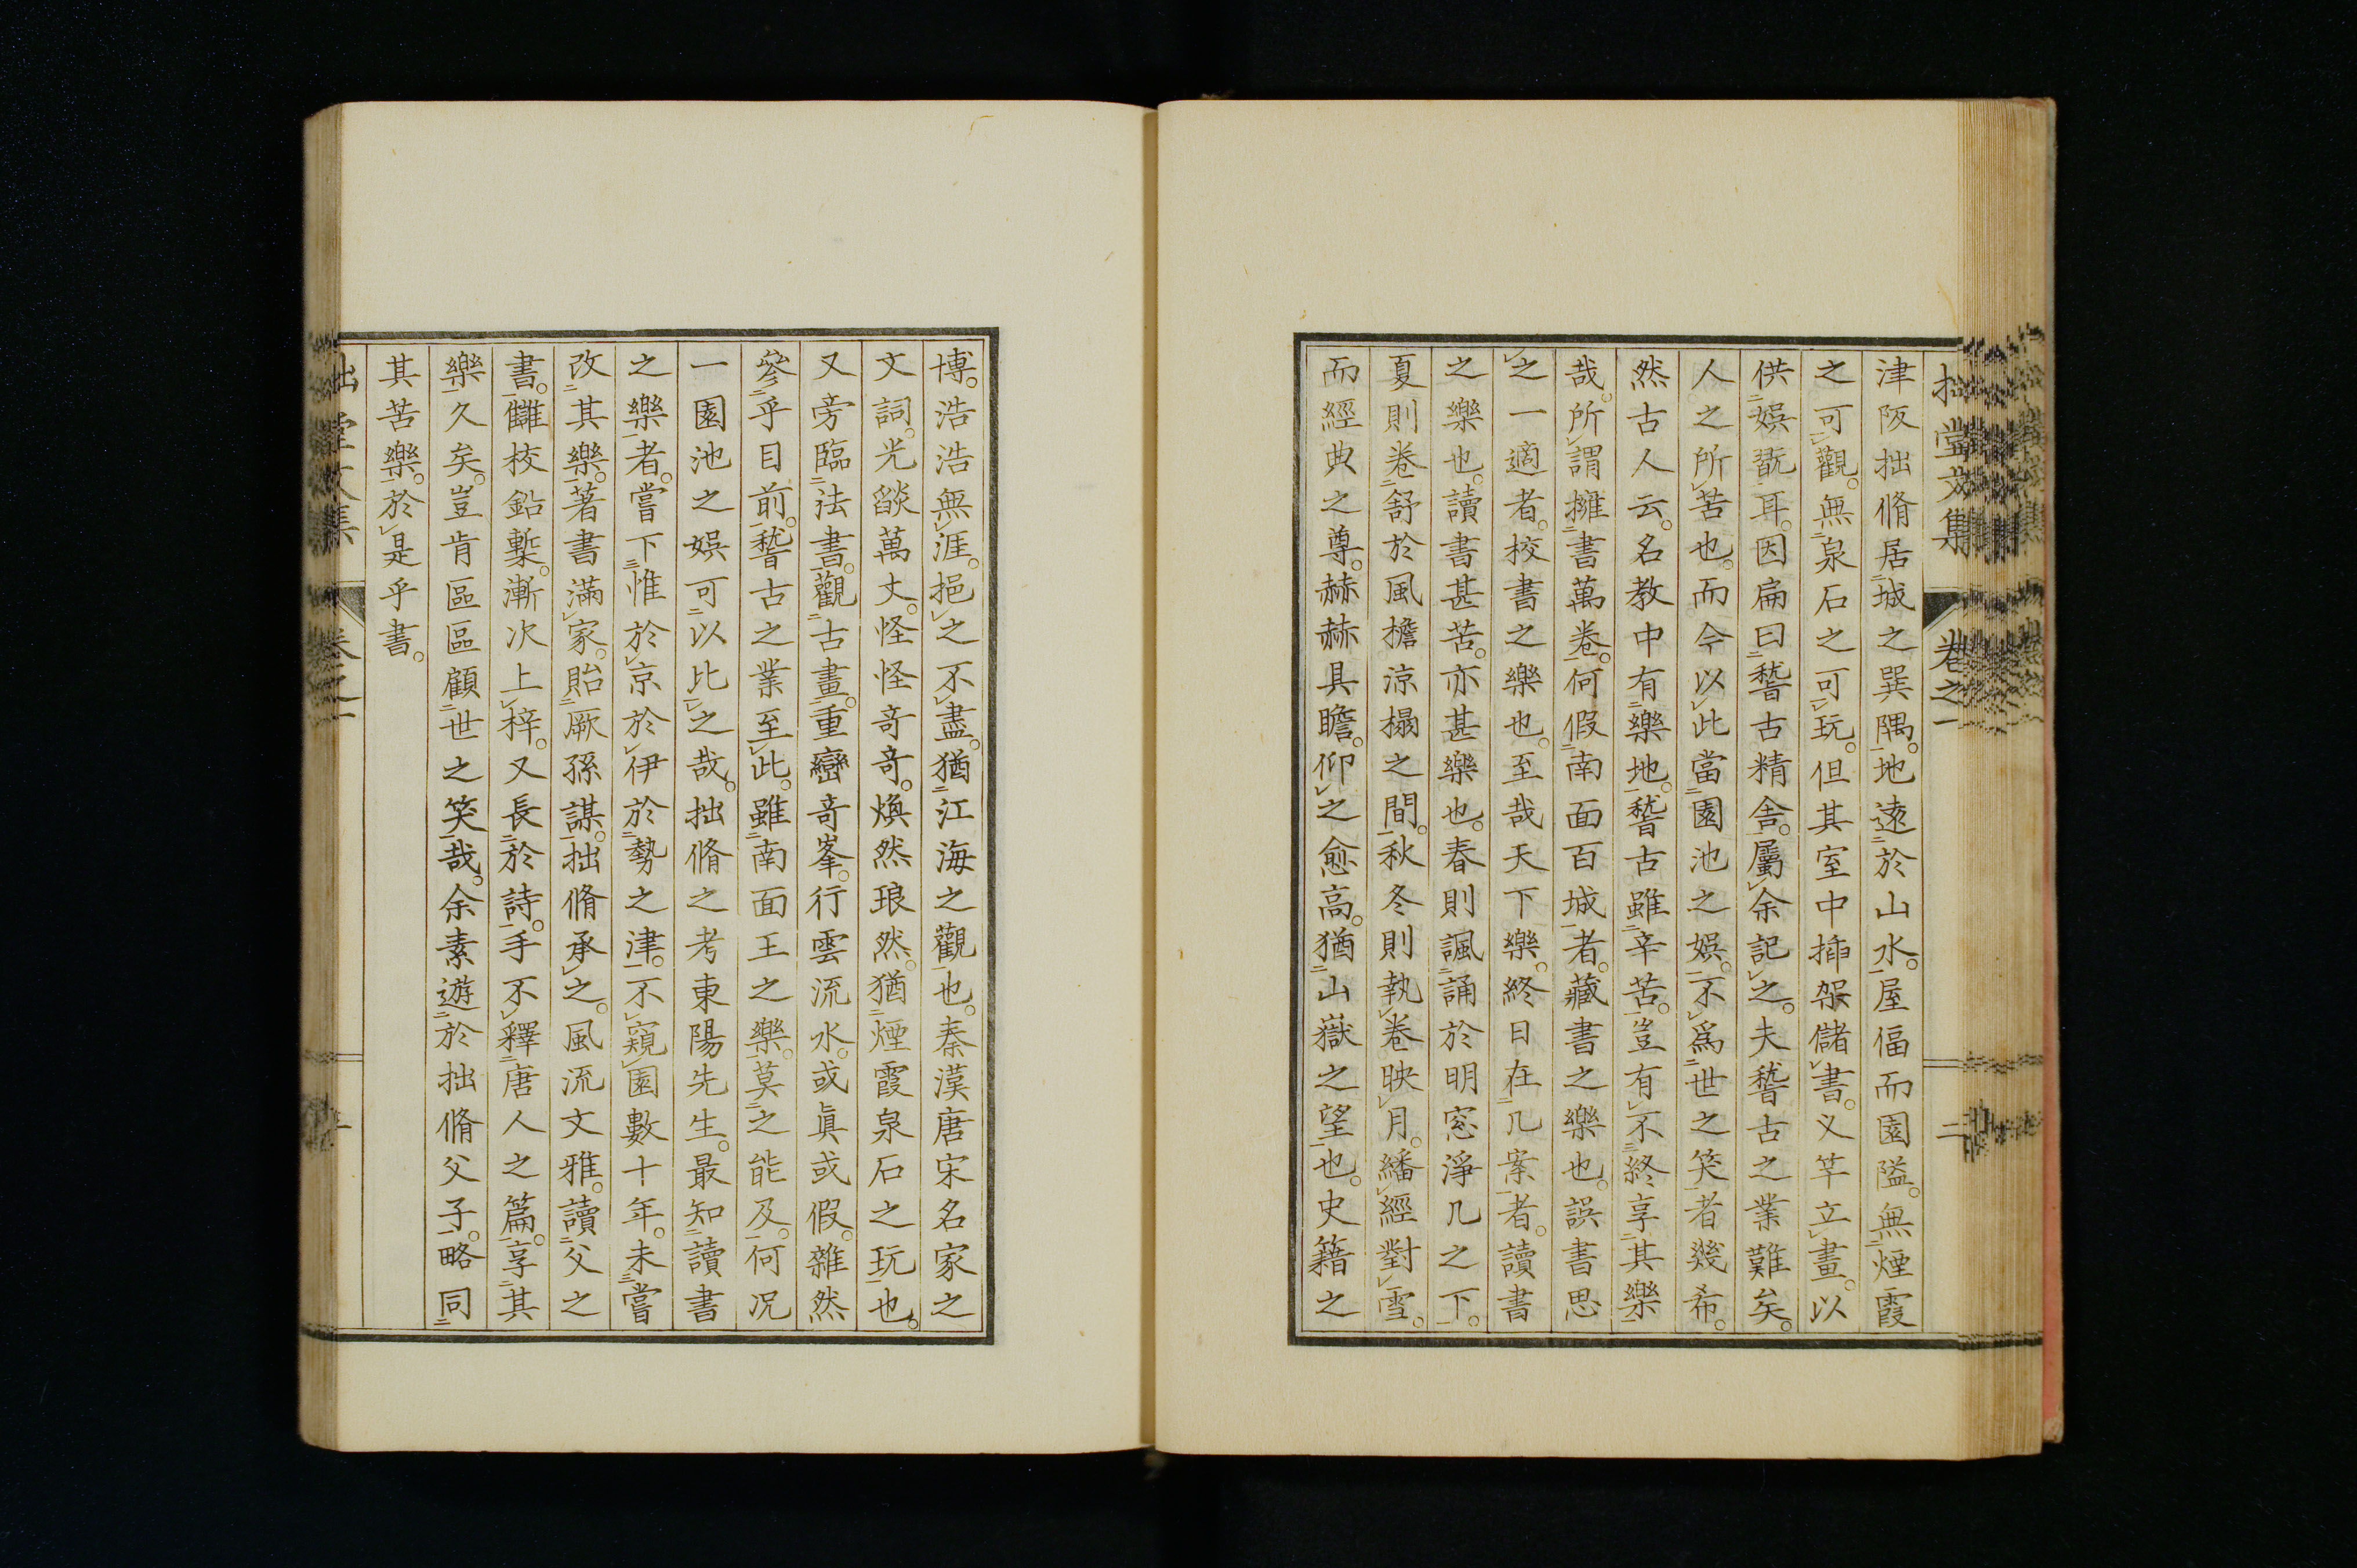 拙堂文集 卷之一 二
津阪拙脩居城之巽隅。地遠於山水。屋偪而園隘。無煙霞
之可觀。無泉石之可玩。但其室中揷架儲書。义竿立畫。以
供娯翫耳。因扁曰稽古精舍。屬余記之。夫稽古之業難矣。
人之所苦也。而今以此當園池之娯。不爲世之笑者幾希。
然古人云。名教中有樂地。稽古雖辛苦。豈有不終享其樂
哉。所謂擁書萬卷。何假南面百城者。藏書之樂也。誤書思
之一適者。校書之樂也。至哉天下樂。終日在几案者。讀書
之樂也。讀書甚苦。亦甚樂也。春則諷誦於明窓淨几之下。
夏則卷舒於風檐涼榻之間。秋冬則執卷映月。繙經對雪。
而經典之尊。赫赫具瞻。仰之愈高。猶山嶽之望也。史籍之
博。浩浩無涯。挹之不盡。猶江海之觀也。秦漢唐宋名家之
文詞。光燄萬丈。怪怪奇奇。煥然琅然。猶煙霞泉石之玩也。
又旁臨法書。觀古畫。重巒奇峯。行雲流水。或眞或假。雜然
參乎目前。稽古之業至此。雖南面王之樂。莫之能及。何况
一園池之娯可以比之哉。拙脩之考東陽先生。最知讀書
之樂者。嘗下惟於京於伊於勢之津。不窺園數十年。未嘗
改其樂。著書滿家。貽厥孫謀。拙脩承之。風流文雅。讀父之
書。讎校鉛槧。漸次上梓。又長於詩。手不釋唐人之篇。享其
樂久矣。豈肯區區顧世之笑哉。余素遊於拙脩父子。略同
其苦樂。於是乎書。